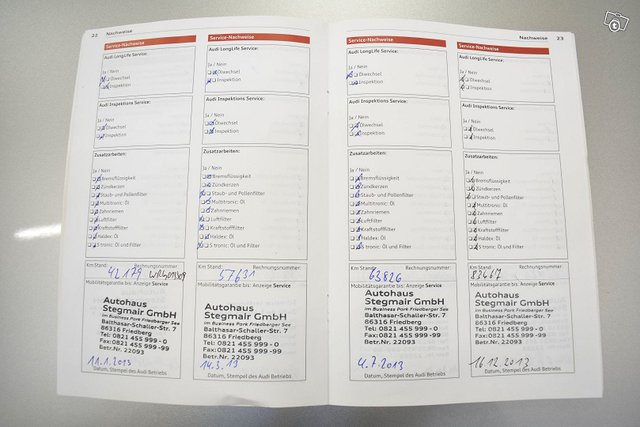 22 Nachweise
Service-Nachweise
Audi LongLife Service:
Ja / Nein
Ölwechsel
Inspektion
Audi Inspektions Service:
Ja / Nein
Ölwechsel
Inspektion
Zusatzarbeiten:
Ja / Nein
Bremsflüssigkeit
Zündkerzen
Staub- und Pollenfilter
Multitronic: Öl
Zahnriemen
Luftfilter
Kraftstofffilter
Haldex: Öl
S tronic: Öl und Filter
Km Stand: Rechnungsnummer:
42179
Mobilitätsgarantie bis: Anzeige Service
Autohaus
Stegmair GmbH
im Business Park Friedberger See
Balthasar-Schaller-Str. 7
86316 Friedberg
Tel: 0821 455 999 - 0
Fax: 0821 455 999 -99
Betr.Nr. 22093
11.1.2013
Datum, Stempel des Audi Betriebs
Service-Nachweise
Audi LongLife Service:
Ja / Nein
Ölwechsel
Inspektion
Audi Inspektions Service:
Ja / Nein
Ölwechsel
Inspektion
Zusatzarbeiten:
Ja / Nein
Bremsflüssigkeit
Zündkerzen
Staub- und Pollenfilter
Multitronic: Öl
Zahnriemen
Luftfilter
Kraftstofffilter
Haldex: Öl
S tronic: Öl und Filter
Km Stand: Rechnungsnummer:
57631
Mobilitätsgarantie bis: Anzeige Service
Autohaus
Stegmair GmbH
im Business Park Friedberger See
Balthasar-Schaller-Str. 7
86316 Friedberg
Tel: 0821 455 999 - 0
Fax: 0821 455 999 -99
Betr.Nr. 22093
14.3.13
Datum, Stempel des Audi Betriebs
Nachweise 23
Service-Nachweise
Audi LongLife Service:
Ja / Nein
Ölwechsel
Inspektion
Audi Inspektions Service:
Ja / Nein
Ölwechsel
Inspektion
Zusatzarbeiten:
Ja / Nein
Bremsflüssigkeit
Zündkerzen
Staub- und Pollenfilter
Multitronic: Öl
Zahnriemen
Luftfilter
Kraftstofffilter
Haldex: Öl
S tronic: Öl und Filter
Km Stand: Rechnungsnummer:
63826
Mobilitätsgarantie bis: Anzeige Service
Autohaus
Stegmair GmbH
im Business Park Friedberger See
Balthasar-Schaller-Str. 7
86316 Friedberg
Tel: 0821 455 999 - 0
Fax: 0821 455 999 -99
Betr.Nr. 22093
4.7.2013
Datum, Stempel des Audi Betriebs
Service-Nachweise
Audi LongLife Service:
Ja / Nein
Ölwechsel
Inspektion
Audi Inspektions Service:
Ja / Nein
Ölwechsel
Inspektion
Zusatzarbeiten:
Ja / Nein
Bremsflüssigkeit
Zündkerzen
Staub- und Pollenfilter
Multitronic: Öl
Zahnriemen
Luftfilter
Kraftstofffilter
Haldex: Öl
S tronic: Öl und Filter
Km Stand: Rechnungsnummer:
83467
Mobilitätsgarantie bis: Anzeige Service
Autohaus
Stegmair GmbH
im Business Park Friedberger See
Balthasar-Schaller-Str. 7
86316 Friedberg
Tel: 0821 455 999 - 0
Fax: 0821 455 999 -99
Betr.Nr. 22093
16.12.2013
Datum, Stempel des Audi Betriebs